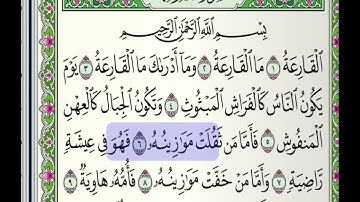 بِسْمِ ٱللَّهِ ٱلرَّحْمَٰنِ ٱلرَّحِيمِ
ٱلْقَارِعَةُ ١ مَا ٱلْقَارِعَةُ ٢ وَمَآ أَدْرَىٰكَ مَا ٱلْقَارِعَةُ ٣ يَوْمَ
يَكُونُ ٱلنَّاسُ كَٱلْفَرَاشِ ٱلْمَبْثُوثِ ٤ وَتَكُونُ ٱلْجِبَالُ كَٱلْعِهْنِ
ٱلْمَنفُوشِ ٥ فَأَمَّا مَن ثَقُلَتْ مَوَٰزِينُهُۥ ٦ فَهُوَ فِي عِيشَةٍ
رَّاضِيَةٍ ٧ وَأَمَّا مَنْ خَفَّتْ مَوَٰزِينُهُۥ ٨ فَأُمُّهُۥ هَاوِيَةٌ ٩